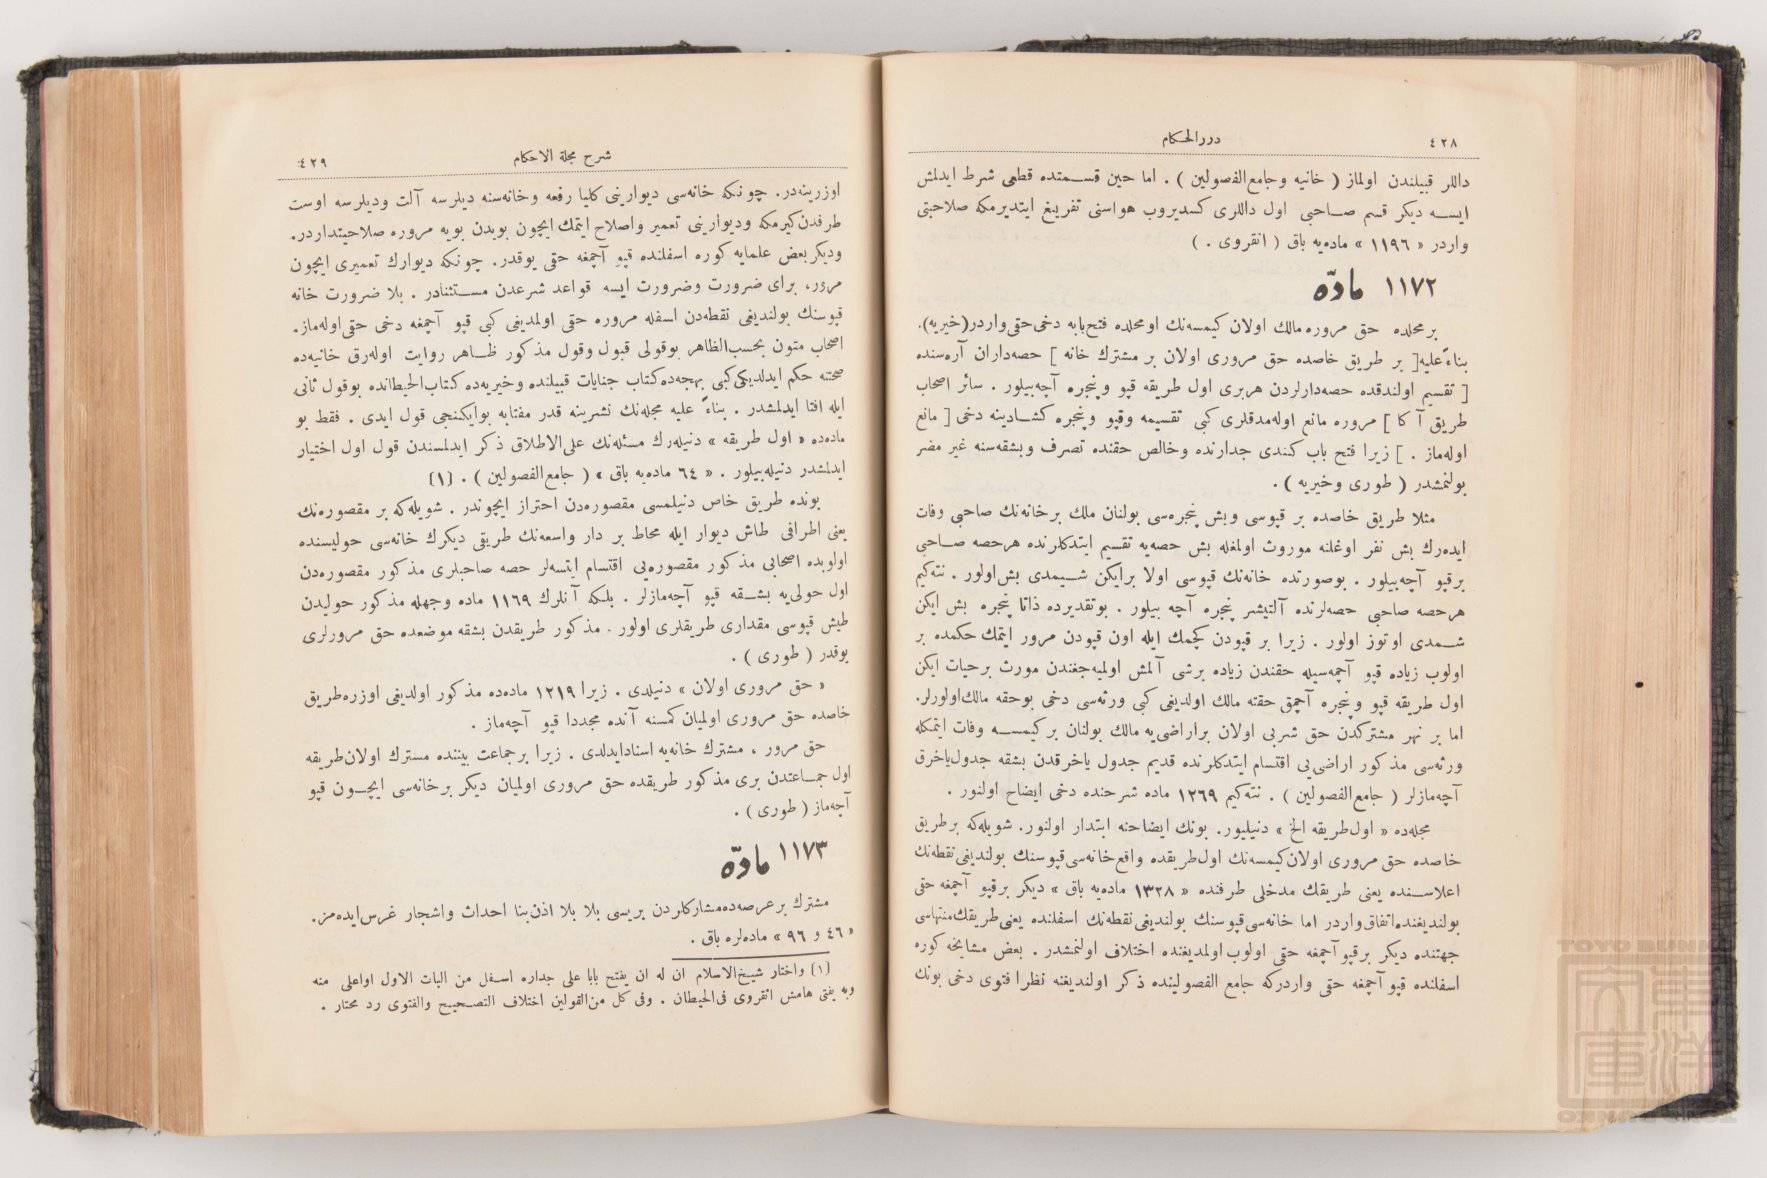 ٤٢٨
دررالحكام
داللر قبيلندن اولماز ( خانيه وجامع الفصولين ) . اما حين قسمتده قطعى شرط ايدلمش
ايسه ديكر قسم صاحبى اول داللرى كسديروب هواسنى تفريغ ايتديرمكه صلاحيتى
واردر « ١١٩٦ » ماده‌يه باق ( انقروى . )
١١٧٢ مادّه
بر محلده حق مروره مالك اولان كيمسه‌نك او محلده فتح بابه دخى حقى واردر (خيريه).
بناءً عليه [ بر طريق خاصده حق مرورى اولان بر مشترك خانه ] حصه‌داران آره‌سنده
[ تقسيم اولندقده حصه‌دارلردن هربرى اول طريقه قپو وپنجره آچه‌بيلور . سائر اصحاب
طريق آ كا ] مروره مانع اوله‌مدقلرى كبى تقسيمه وقپو وپنجره كشادينه دخى [ مانع
اوله‌ماز . ] زيرا فتح باب كندى جدارنده وخالص حقنده تصرف وبشقه‌سنه غير مضر
بولنمشدر ( طورى وخيريه ) .
مثلا طريق خاصده بر قپوسى وبش پنجره‌سى بولنان ملك برخانه‌نك صاحبى وفات
ايده‌رك بش نفر اوغلنه موروث اولمغله بش حصه‌يه تقسيم ايتدكلرنده هرحصه صاحبى
برقپو آچه‌بيلور . بوصورتده خانه‌نك قپوسى اولا برايكن شيمدى بش اولور . نته‌كيم
هرحصه صاحبى حصه‌لرنده آلتيشر پنجره آچه بيلور . بوتقديرده ذاتا پنجره بش ايكن
شمدى اوتوز اولور . زيرا بر قپودن كچمك ايله اون قپودن مرور ايتمك حكمده بر
اولوب زياده قپو آچمه‌سيله حقندن زياده برشى آلمش اولميه‌جغندن مورث برحيات ايكن
اول طريقه قپو وپنجره آچمق حقنه مالك اولديغى كبى ورثه‌سى دخى بوحقه مالك اولورلر.
اما بر نهر مشتركدن حق شربى اولان براراضى‌يه مالك بولنان بر كيمسه وفات ايتمكله
ورثه‌سى مذكور اراضى‌يى اقتسام ايتدكلرنده قديم جدول ياخرقدن بشقه جدول ياخرق
آچه‌مازلر ( جامع الفصولين ) . نته‌كيم ١٢٦٩ ماده شرحنده دخى ايضاح اولنور .
مجله‌ده « اول طريقه الخ » دنيليور. بونك ايضاحنه ابتدار اولنور. شويله‌كه برطريق
خاصده حق مرورى اولان كيمسه‌نك اول طريقده واقع خانه‌سى قپوسنك بولنديغى نقطه‌نك
اعلاسنده يعنى طريقك مدخلى طرفنده « ١٣٢٨ ماده‌يه باق » ديكر برقپو آچمغه حقى
بولنديغنده اتفاق واردر اما خانه‌سى قپوسنك بولنديغى نقطه‌نك اسفلنده يعنى طريقك منتهاسى
جهتنده ديكر برقپو آچمغه حقى اولوب اولمديغنده اختلاف اولنمشدر . بعض مشايخه كوره
اسفلنده قپو آچمغه حقى واردركه جامع الفصولينده ذكر اولنديغنه نظرا فتوى دخى بونك
شرح مجلة الاحكام
٤٢٩
اوزرينه‌در. چونكه خانه‌سى ديوارينى كليا رفعه وخانه‌سنه ديلرسه آلت وديلرسه اوست
طرفدن كيرمكه وديوارينى تعمير واصلاح ايتمك ايچون بويدن بويه مروره صلاحيتداردر.
وديكر بعض علمايه كوره اسفلنده قپو آچمغه حقى يوقدر. چونكه ديوارك تعميرى ايچون
مرور، براى ضرورت وضرورت ايسه قواعد شرعدن مستثنادر . بلا ضرورت خانه
قپوسنك بولنديغى نقطه‌دن اسفله مروره حقى اولمديغى كبى قپو آچمغه دخى حقى اوله‌ماز.
اصحاب متون بحسب الظاهر بوقولى قبول وقول مذكور ظاهر روايت اوله‌رق خانيه‌ده
صحتنه حكم ايدلديكى كبى بهجه‌ده كتاب جنايات قبيلنده وخيريه‌ده كتاب الحيطانده بوقول ثانى
ايله افتا ايدلمشدر . بناءً عليه مجله‌نك نشرينه قدر مفتابه بوايكنجى قول ايدى . فقط بو
ماده‌ده « اول طريقه » دنيله‌رك مسئله‌نك على الاطلاق ذكر ايدلمسندن قول اول اختيار
ايدلمشدر دنيله‌بيلور . « ٦٤ ماده‌يه باق » ( جامع الفصولين ) . (١)
بونده طريق خاص دنيلمسى مقصوره‌دن احتراز ايچوندر . شويله‌كه بر مقصوره‌نك
يعنى اطرافى طاش ديوار ايله محاط بر دار واسعه‌نك طريقى ديكرك خانه‌سى حوليسنده
اولوبده اصحابى مذكور مقصوره‌يى اقتسام ايتسه‌لر حصه صاحبلرى مذكور مقصوره‌دن
اول حولى‌يه بشقه قپو آچه‌مازلر . بلكه آنلرك ١١٦٩ ماده وجهله مذكور حوليدن
طيش قپوسى مقدارى طريقلرى اولور . مذكور طريقدن بشقه موضعده حق مرورلرى
يوقدر ( طورى ) .
« حق مرورى اولان » دنيلدى . زيرا ١٢١٩ ماده‌ده مذكور اولديغى اوزره طريق
خاصده حق مرورى اولميان كمسنه آنده مجددا قپو آچه‌ماز .
حق مرور ، مشترك خانه‌يه اسناد ايدلدى . زيرا برجماعت بيننده مشترك اولان طريقه
اول جماعتدن برى مذكور طريقده حق مرورى اولميان ديكر برخانه‌سى ايچون قپو
آچه‌ماز ( طورى ) .
١١٧٣ مادّه
مشترك برعرصه‌ده مشاركلردن بريسى بلا بلا اذن بنا احداث واشجار غرس ايده‌مز.
« ٤٦ و ٩٦ » ماده‌لره باق .
(١) واختار شيخ‌الاسلام ان له ان يفتح بابا على جداره اسفل من الباب الاول او اعلى منه
وبه يفتى هامش انقروى فى الحيطان . وفى كل من القولين اختلاف التصحيح والفتوى رد محتار .